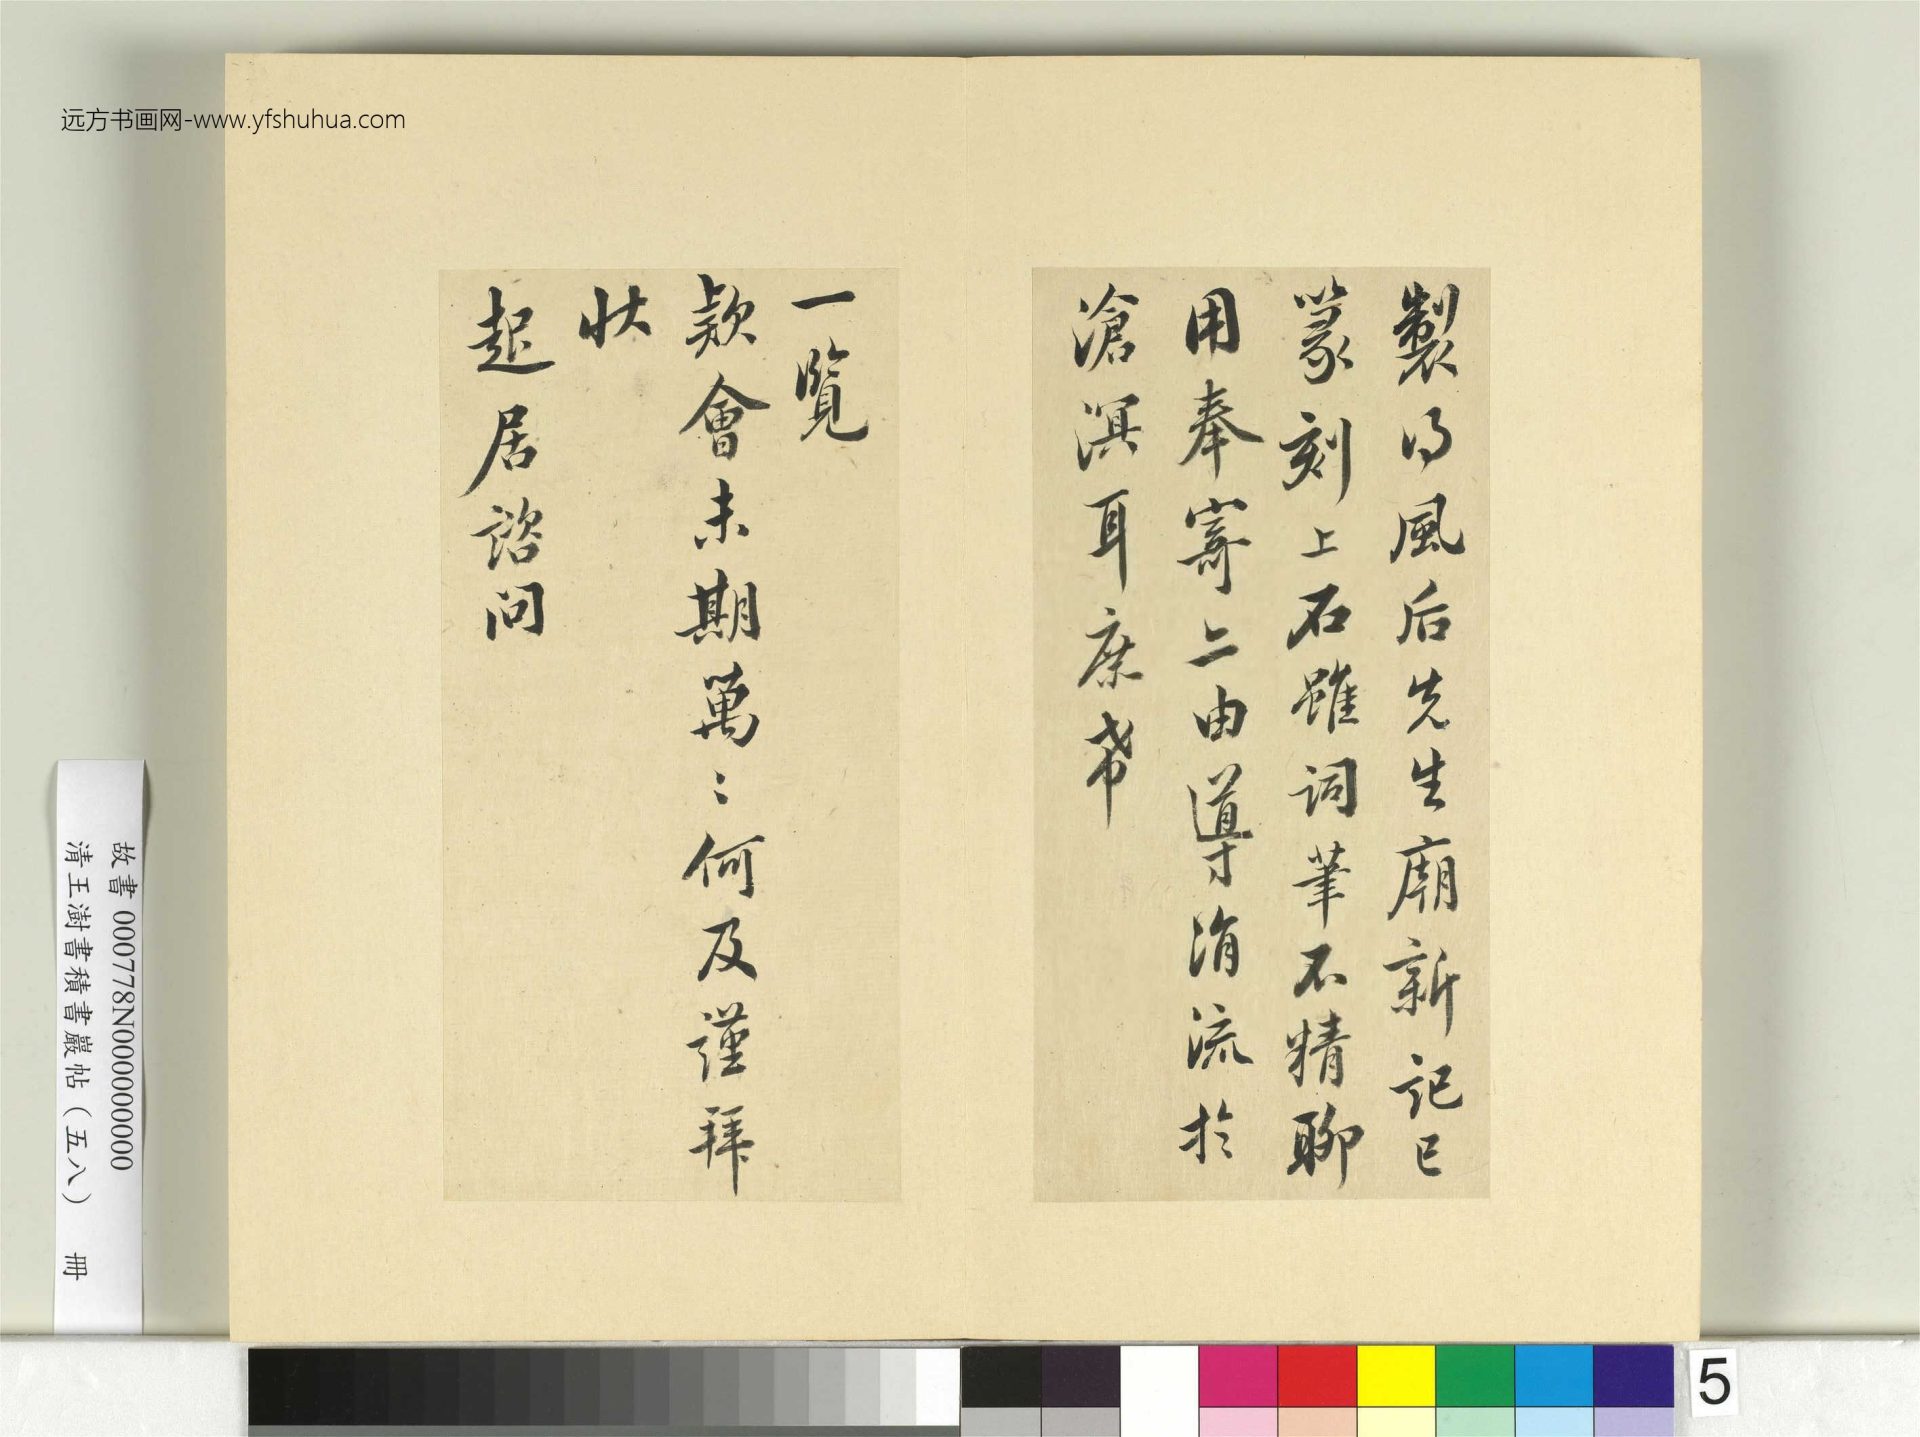 远方书画网-www.yfshuhua.com
製得風后先生廟新記已
篆刻上石雖詞筆不精聊
用奉寄亦由導涓流於
滄溟耳庶希
一覽
款會未期萬〻何及謹拜
狀
起居諮問
故書 000778N000000000
清王澍書積書巖帖（五八） 冊
5